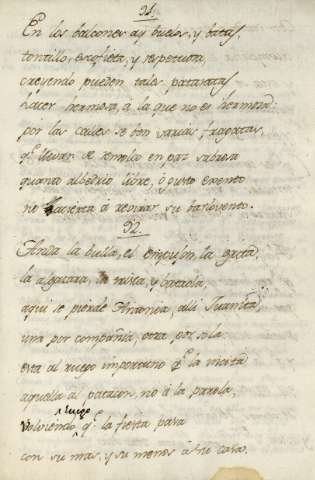 91.
En los balcones ay buelos, y batas,
tontillo, escofieta, y respetosa,
creyendo pueden tales pataratas
hacer hermosa, á la que no es hermosa:
por las calles se ven varias fragatas,
q.e llevan se remolco en paz sabrosa
quanto albedrio libre, ó justo exento
no acierta á revirar su barlovento.
92.
Anda la bulla, el empujon, la grita,
la algazara, la mista, y bataola,
aqui se pierde Antonia, alli Juanita,
una por compañia, otra por sola
esta al ruego importuno q.e la incita
aquella al patacon, no á la parola,
luego
volviendo q.e la fiesta para
con su mas, y su menos á su casa.